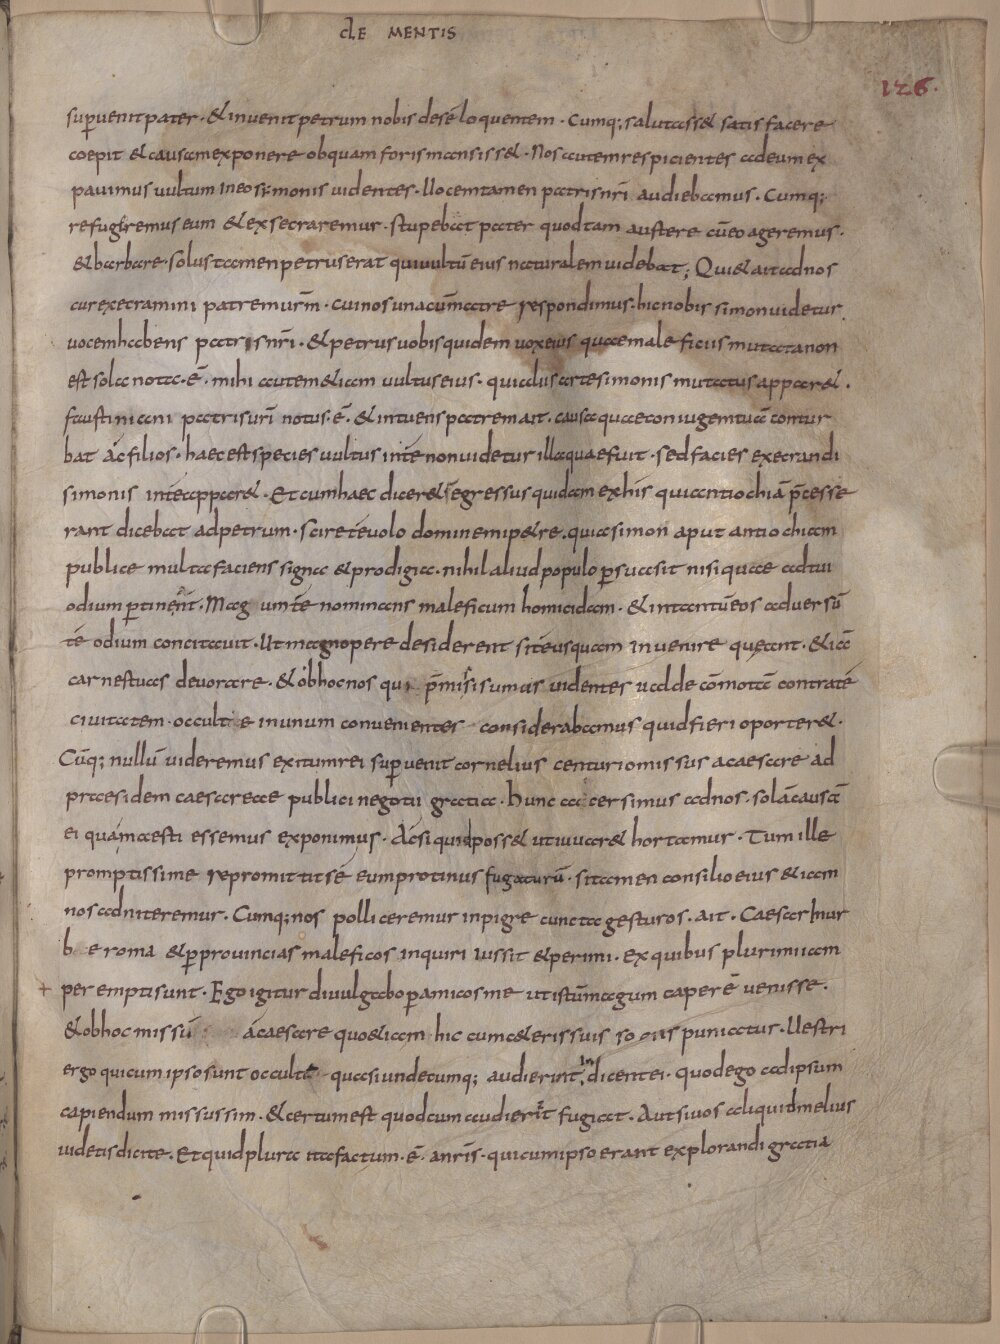 CLE MENTIS
126.
supuenit pater · & inuenit petrum nobis desē loquentem · Cumq; salutass& satis facere
coepit & causam exponere obquam foris mansiss& · Nos autem respicientes adeum ex
pauimus uultum ineo simonis uidentes · Uocem tamen patris nr̄i audiebamus · Cumq;
refugeremus eum & exsecraremur · stupebat pater quod tam austere cū eo ageremus ·
& barbare · solus tamen petrus erat qui uultū eius naturalem uidebat; Qui & ait adnos
cur execramini patrem ur̄m · cui nos una cū matre respondimus · hic nobis simon uidetur
uocem habens patris nr̄i · & petrus uobis quidem uox eius quae maleficiis mutata non
est sola nota · ē · mihi autem & iam uultus eius · qui aliis arte simonis mutatus appar& ·
faustiniani patris ur̄i notus · ē · & intuens patrem ait · causa quae coniugem tuā contur
bat ac filios · haec est species uultus inte non uidetur illa quae fuit · sed facies execrandi
simonis inte appar& · Et cum haec dicer& egressus quidam ex his qui antiochiā p̄cesse
rant dicebat ad petrum · scire te uolo domine mi p&re · quia simon aput antiochiam
publice multa faciens signa & prodigia · nihil aliud populo psuasit nisi quae ad tui
odium ptinent · Mag um te nominans maleficum homicidam · & intantū eos aduersū
te odium concitauit · Ut magnopere desiderent site usquam inuenire queant · & iā
carnes tuas deuorare · & ob hoc nos qui p̄missi sumus uidentes ualde cōmotā contra te
ciuitatem · occulte in unum conuenientes considerabamus quid fieri oporter& ·
Cūq; nullū uideremus exitum rei supuenit cornelius centurio missus a caesare ad
praesidem caesareae publici negotii gratia · hunc accersimus adnos · solā causā
ei quā maesti essemus exponimus · Ac si quid poss& ut iuuar& hortamur · Tum ille
promptissime repromittit se eum protinus fugaturū · si tamen consilio eius & iam
nos adniteremur · Cumq; nos polliceremur inpigre cuncta gesturos · ait · Caesar hur
b e roma & p prouincias maleficos inquiri iussit & perimi · Ex quibus plurimi iam
+ perempti sunt · Ego igitur diuulgabo p amicos me ut istū magum caperē uenisse ·
& ob hoc missū a caesare quo & iam hic cum c&eris suis puniatus · Uestri
ergo qui cum ipso sunt occulte quasi undecumq; audierint, dicent ei · quod ego ad ipsum
capiendum missus sim · & certum est quod cum audierit fugiat · Aut si uos aliquid melius
uidetis dicite · Et quid plura ita factum · ē · a nr̄is · qui cum ipso erant explorandi gratia